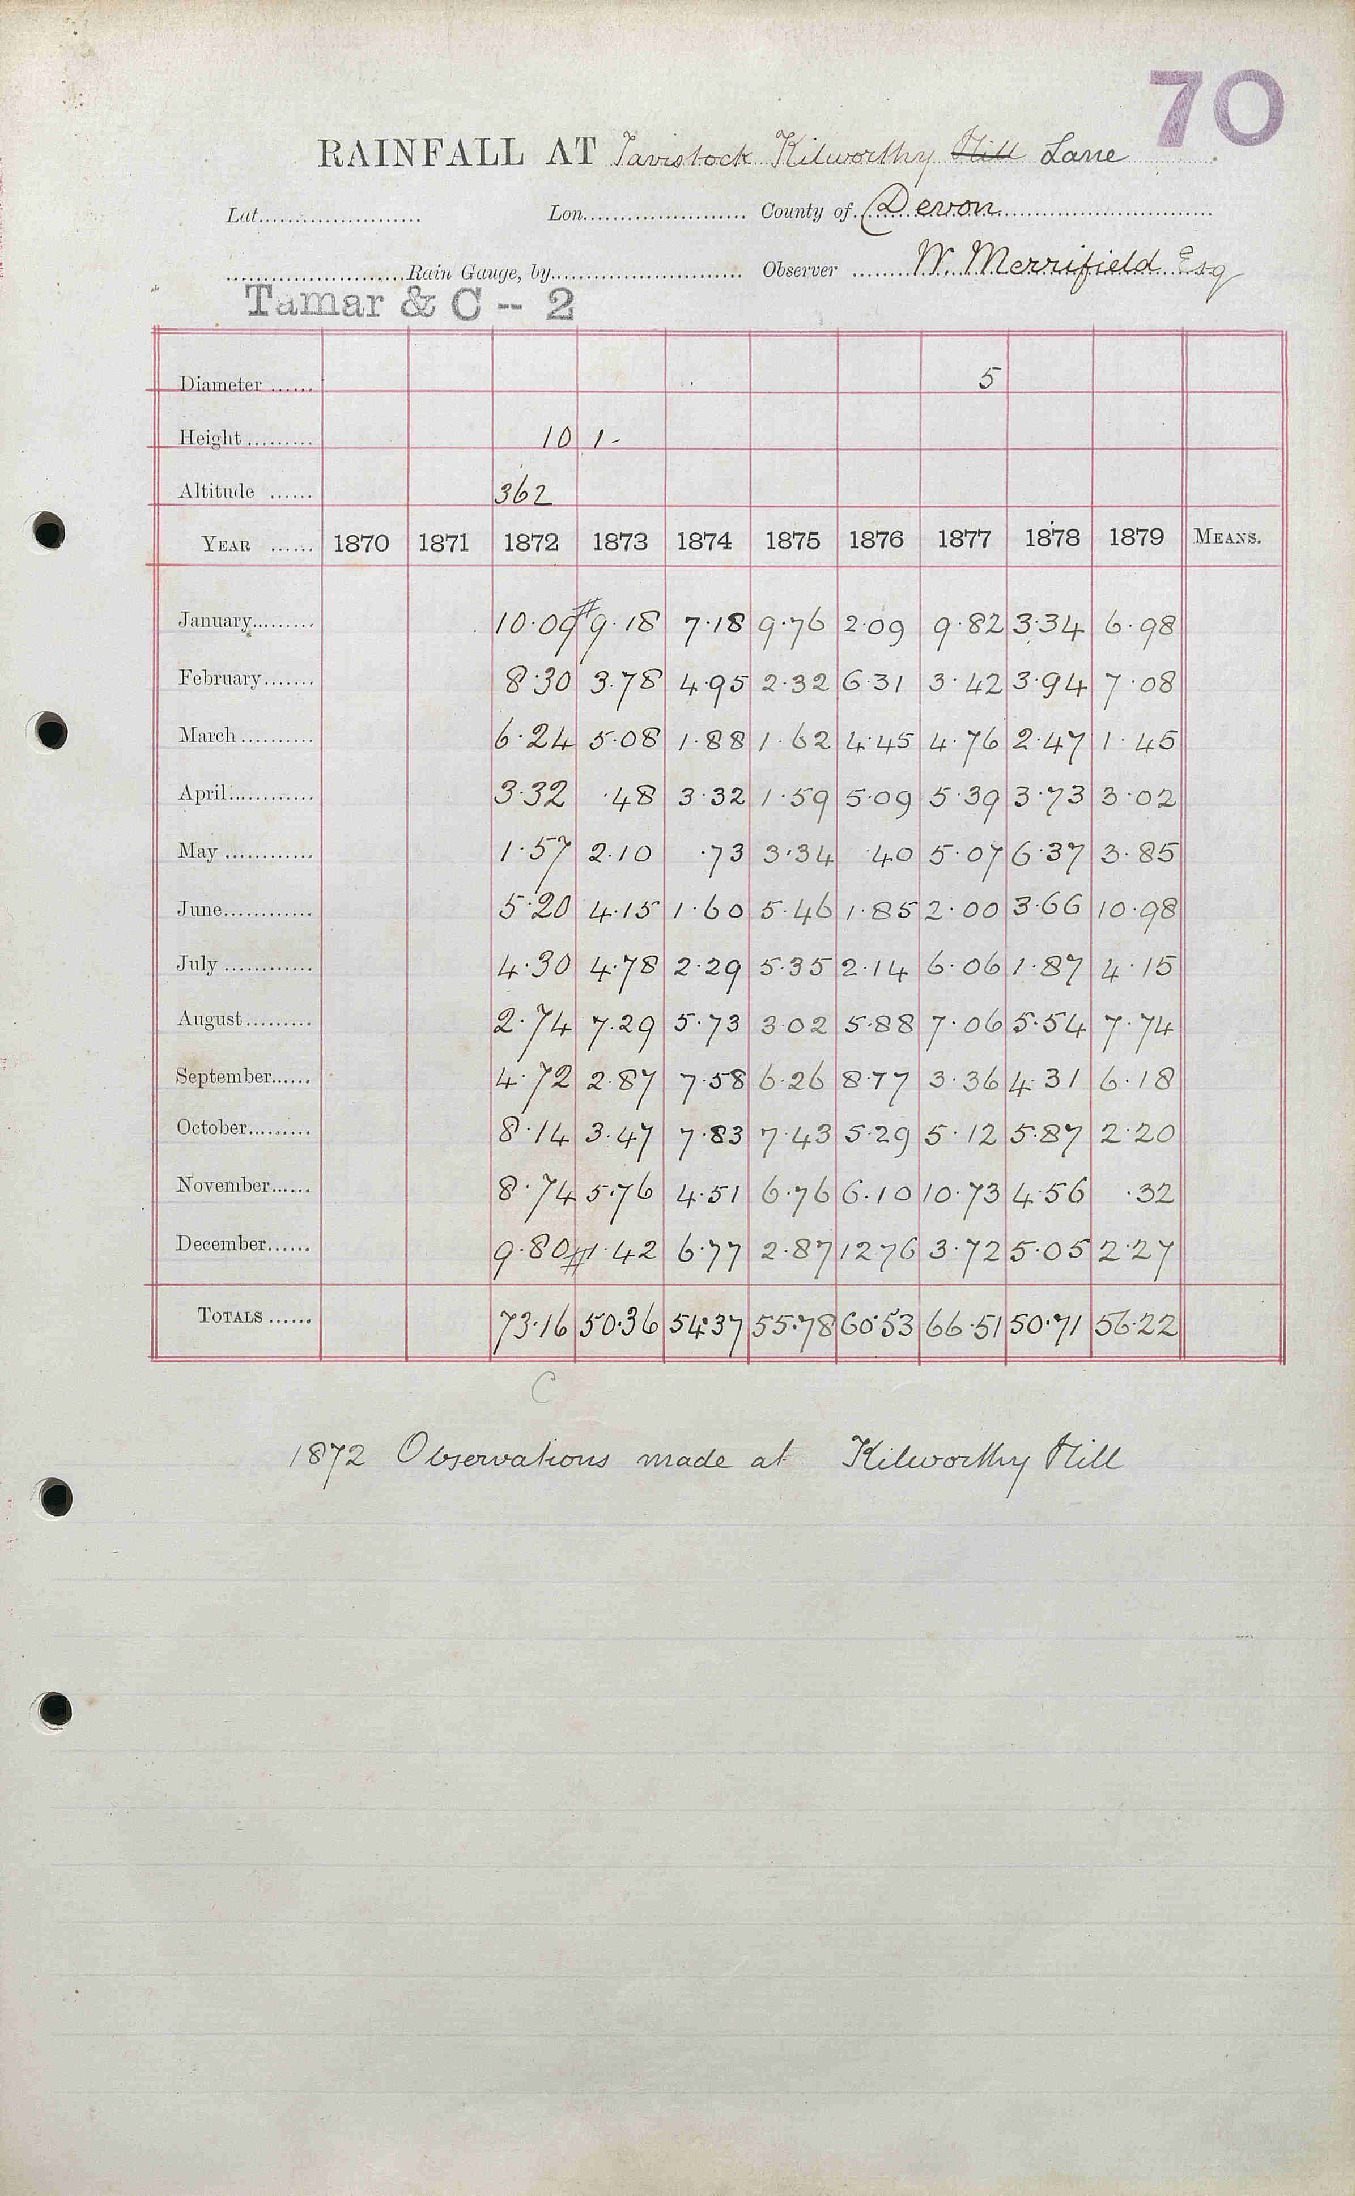 70
RAINFALL AT Tavistock Kilworthy Hill Lane
Lat...................... Lon...................... County of Devon
Rain Gauge, by.......................... Observer W. Merrifield Esq
Tamar & C -- 2
Diameter ...... 5
Height ......... 10 1-
Altitude ...... 362
YEAR ...... 1870 1871 1872 1873 1874 1875 1876 1877 1878 1879 MEANS.
January......... 10.09 # 9.18 7.18 9.76 2.09 9.82 3.34 6.98
February....... 8.30 3.78 4.95 2.32 6.31 3.42 3.94 7.08
March .......... 6.24 5.08 1.88 1.62 4.45 4.76 2.47 1.45
April............ 3.32 .48 3.32 1.59 5.09 5.39 3.73 3.02
May ............ 1.57 2.10 .73 3.34 .40 5.07 6.37 3.85
June............ 5.20 4.15 1.60 5.46 1.85 2.00 3.66 10.98
July ............ 4.30 4.78 2.29 5.35 2.14 6.06 1.87 4.15
August......... 2.74 7.29 5.73 3.02 5.88 7.06 5.54 7.74
September...... 4.72 2.87 7.58 6.26 8.77 3.36 4.31 6.18
October......... 8.14 3.47 7.83 7.43 5.29 5.12 5.87 2.20
November...... 8.74 5.76 4.51 6.76 6.10 10.73 4.56 .32
December...... 9.80 # 1.42 6.77 2.87 12 76 3.72 5.05 2.27
TOTALS ...... 73.16 50.36 54.37 55.78 60.53 66.51 50.71 56.22
C
1872 Observations made at Kilworthy Hill